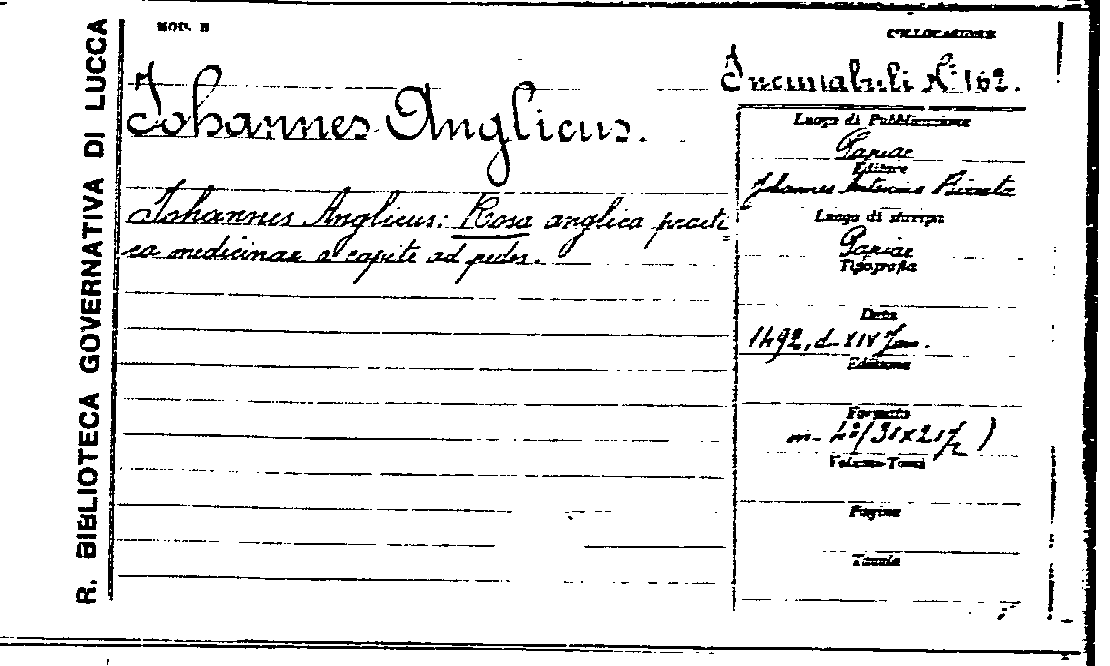 R. BIBLIOTECA GOVERNATIVA DI LUCCA
MOD. B
COLLOCAZIONE
Incunabuli N.º 162.
Johannes Anglicus.
Johannes Anglicus: Rosa anglica practi=
ca medicinae a capite ad pedes.
Luogo di Pubblicazione
Papiae
Editore
Johannes Antonius Birreta
Luogo di stampa
Papiae
Tipografia
Data
1492, d. XIV Jan.
Edizione
Formato
in-4º (31x21½)
Volume-Tomi
Pagine
Tavole